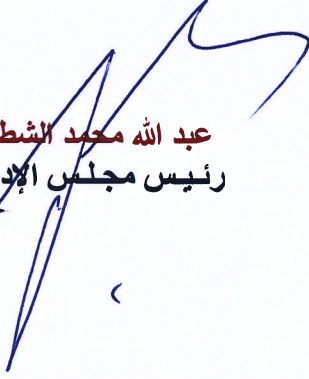 عبد الله محمد الشط
رئيس مجلس الإد